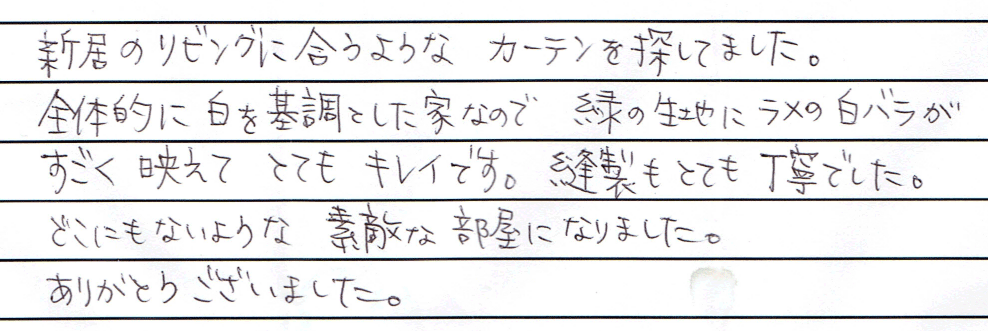 新居のリビングに合うような カーテンを探してました。
全体的に白を基調とした家なので 緑の生地にラメの白バラが
すごく映えて とても キレイです。縫製もとても丁寧でした。
どこにもないような 素敵な部屋になりました。
ありがとうございました。